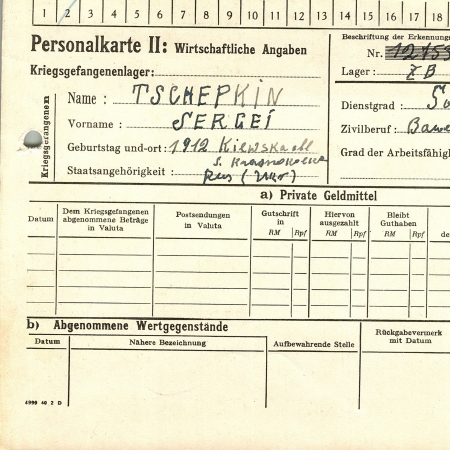 1 2 3 4 5 6 7 8 9 10 11 12 13 14 15 16 17 18
Personalkarte II: Wirtschaftliche Angaben
Beschriftung der Erkennungs
Nr.
Kriegsgefangenenlager:
Lager: ZB
Kriegsgefangenen
Name: TSCHEPKIN
Dienstgrad:
Vorname: SERGEÏ
Zivilberuf: Baue
Geburtstag und-ort: 1912 Kiewskaobl
Grad der Arbeitsfähig
S.
Staatsangehörigkeit: Rus
a) Private Geldmittel
Datum
Dem Kriegsgefangenen abgenommene Beträge in Valuta
Postsendungen in Valuta
Gutschrift in
RM Rpf
Hiervon ausgezahlt
RM Rpf
Bleibt Guthaben
RM Rpf
de
b) Abgenommene Wertgegenstände
Datum
Nähere Bezeichnung
Aufbewahrende Stelle
Rückgabevermerk mit Datum
4990 40 2 D